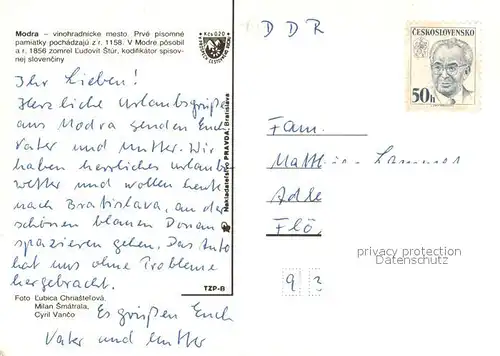 Modra – vinohradnícke mesto. Prvé písomné
pamiatky pochádzajú z r. 1158. V Modre pôsobil
a r. 1856 zomrel Ľudovít Štúr, kodifikátor spisov-
nej slovenčiny
Kčs 0,20
Ihr Lieben!
Herzliche Urlaubsgrüße
aus Modra senden Euch
Vater und Mutter. Wir
haben herrliches Urlaubs
wetter und wollen heute
nach Bratislava, an der
schönen blauen Donau
spazieren gehen. Das Auto
hat uns ohne Probleme
hergebracht.
Es grüßen Euch
Vater und Mutter
Foto Ľubica Chriašteľová,
Milan Šmátrala,
Cyril Vančo
TZP-B
Nakladateľstvo PRAVDA, Bratislava
DDR
ČESKOSLOVENSKO
50h
Fam.
privacy protection
Datenschutz